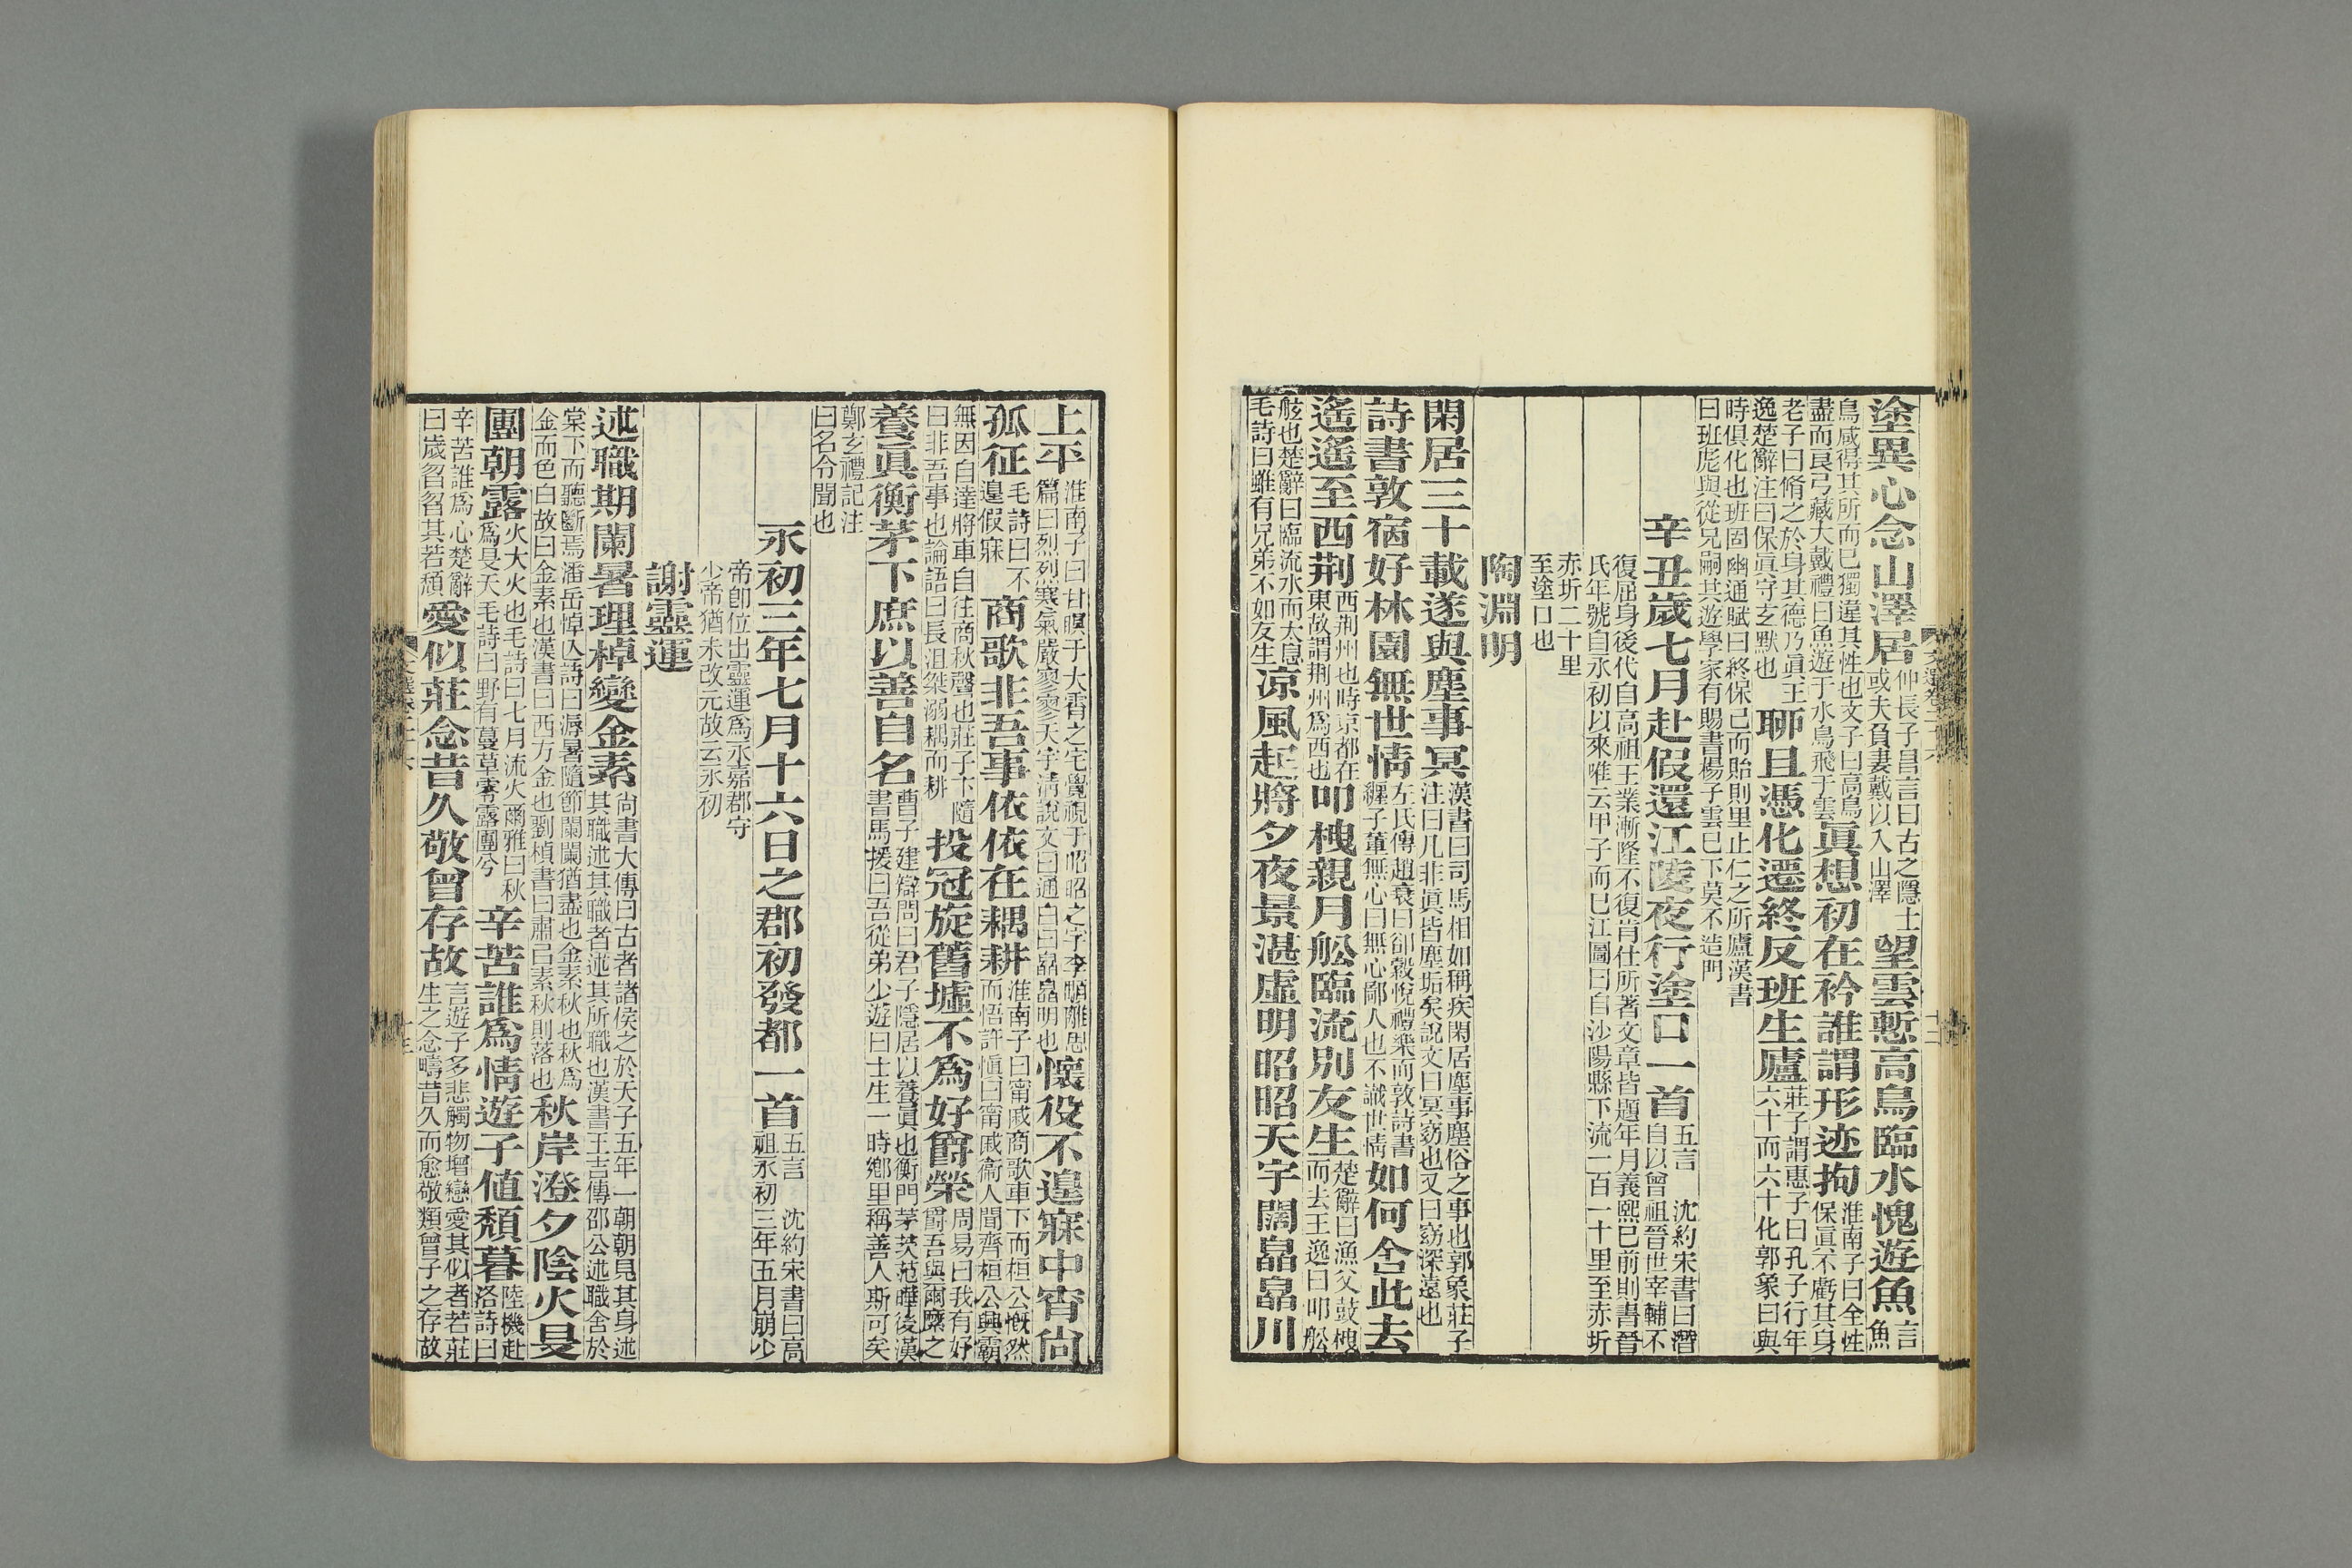 塗異心念山澤居仲長子昌言曰古之隱士或夫負妻戴以入山澤望雲慙高鳥臨水愧遊魚言魚
鳥咸得其所而已獨違其性也文子曰高鳥盡而良弓藏大戴禮曰魚遊于水鳥飛于雲眞想初在衿誰謂形迹拘淮南子曰全性保眞不虧其身
老子曰脩之於身其德乃眞王逸楚辭注曰保眞守玄默也聊且憑化遷終反班生廬莊子謂惠子曰孔子行年六十而六十化郭象曰與
時俱化也班固幽通賦曰終保己而貽則里止仁之所廬漢書曰班彪與從兄嗣共遊學家有賜書楊子雲已下莫不造門
辛丑歲七月赴假還江陵夜行塗口一首五言 沈約宋書曰潛自以曾祖晉世宰輔不
復屈身後代自高祖王業漸隆不復肯仕所著文章皆題年月義熙已前則書晉氏年號自永初以來唯云甲子而已江圖曰自沙陽縣下流一百一十里至赤圻
赤圻二十里至塗口也
陶淵明
閑居三十載遂與塵事冥漢書曰司馬相如稱疾閑居塵事塵俗之事也郭象莊子注曰凡非眞皆塵垢矣說文曰冥窈也又曰窈深遠也
詩書敦宿好林園無世情左氏傳趙衰曰郤縠悅禮樂而敦詩書纒子董無心曰無心鄙人也不識世情如何舍此去
遙遙至西荆西荆州也時京都在東故謂荆州爲西也叩栧親月舩臨流別友生楚辭曰漁父鼓栧而去王逸曰叩舩
舷也楚辭曰臨流水而太息毛詩曰雖有兄弟不如友生涼風起將夕夜景湛虛明昭昭天宇闊皛皛川
上平淮南子曰甘瞑于大霄之宅覺視于昭昭之宇李顒離思篇曰烈烈寒氣嚴寥寥天宇清說文曰通白曰皛皛明也懷役不遑寐中宵尙
孤征毛詩曰不遑假寐商歌非吾事依依在耦耕淮南子曰甯戚商歌車下而桓公慨然而悟許愼曰甯戚衞人聞齊桓公興霸
無因自達將車自往商秋聲也莊子卞隨曰非吾事也論語曰長沮桀溺耦而耕投冠旋舊墟不爲好爵榮周易曰我有好爵吾與爾縻之
養眞衡茅下庶以善自名曹子建辯問曰君子隱居以養眞也衡門茅茨范曄後漢書馬援曰吾從弟少遊曰士生一時鄉里稱善人斯可矣
鄭玄禮記注曰名令聞也
永初三年七月十六日之郡初發都一首五言 沈約宋書曰高祖永初三年五月崩少
帝卽位出靈運爲永嘉郡守少帝猶未改元故云永初
謝靈運
述職期闌暑理棹變金素尙書大傳曰古者諸侯之於天子五年一朝朝見其身述其職述其職者述其所職也漢書王吉傳邵公述職舍於
棠下而聽斷焉潘岳悼亡詩曰溽暑隨節闌闌猶盡也金素秋也秋爲金而色白故曰金素也漢書曰西方金也劉楨書曰肅己素秋則落也秋岸澄夕陰火旻
團朝露火大火也毛詩曰七月流火爾雅曰秋爲旻天毛詩曰野有蔓草零露團兮辛苦誰爲情遊子値頹暮陸機赴洛詩曰
辛苦誰爲心楚辭曰歲曶曶其若頹愛似莊念昔久敬曾存故言遊子多悲觸物增戀愛其似者若莊生之念疇昔久而愈敬類曾子之存故